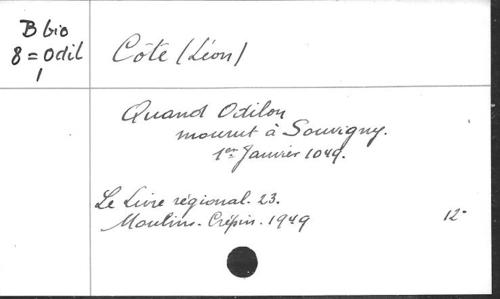 B bio
8=Odil
1
Côte (Léon)
Quand Odilon
mourut à Souvigny.
1er Janvier 1049.
Le Livre régional. 23.
Moulins. Crépin. 1949
12°